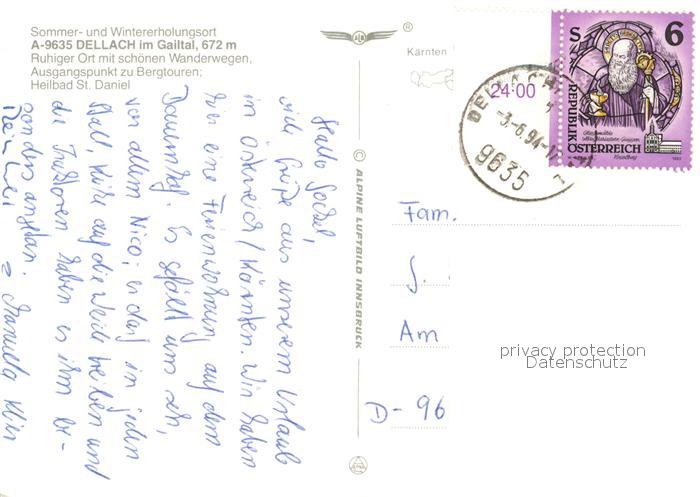 Sommer- und Wintererholungsort
A-9635 DELLACH im Gailtal, 672 m
Ruhiger Ort mit schönen Wanderwegen,
Ausgangspunkt zu Bergtouren;
Heilbad St. Daniel
®
Kärnten
24:00
S 6
REPUBLIK
ÖSTERREICH
-3.-6.94-17
9635
© ALPINE LUFTBILD INNSBRUCK
Hallo
viele Grüße aus unserem Urlaub
in Österreich / Kärnten. Wir haben
hier eine Ferienwohnung auf dem
Bauernhof. Es gefällt uns sehr,
vor allem Nico; er darf in jeden
Stall, Kühe auf die Weide treiben und
die Traktoren haben es ihm be-
sonders angetan.
Fam.
J.
Am
D- 96
privacy protection
Datenschutz